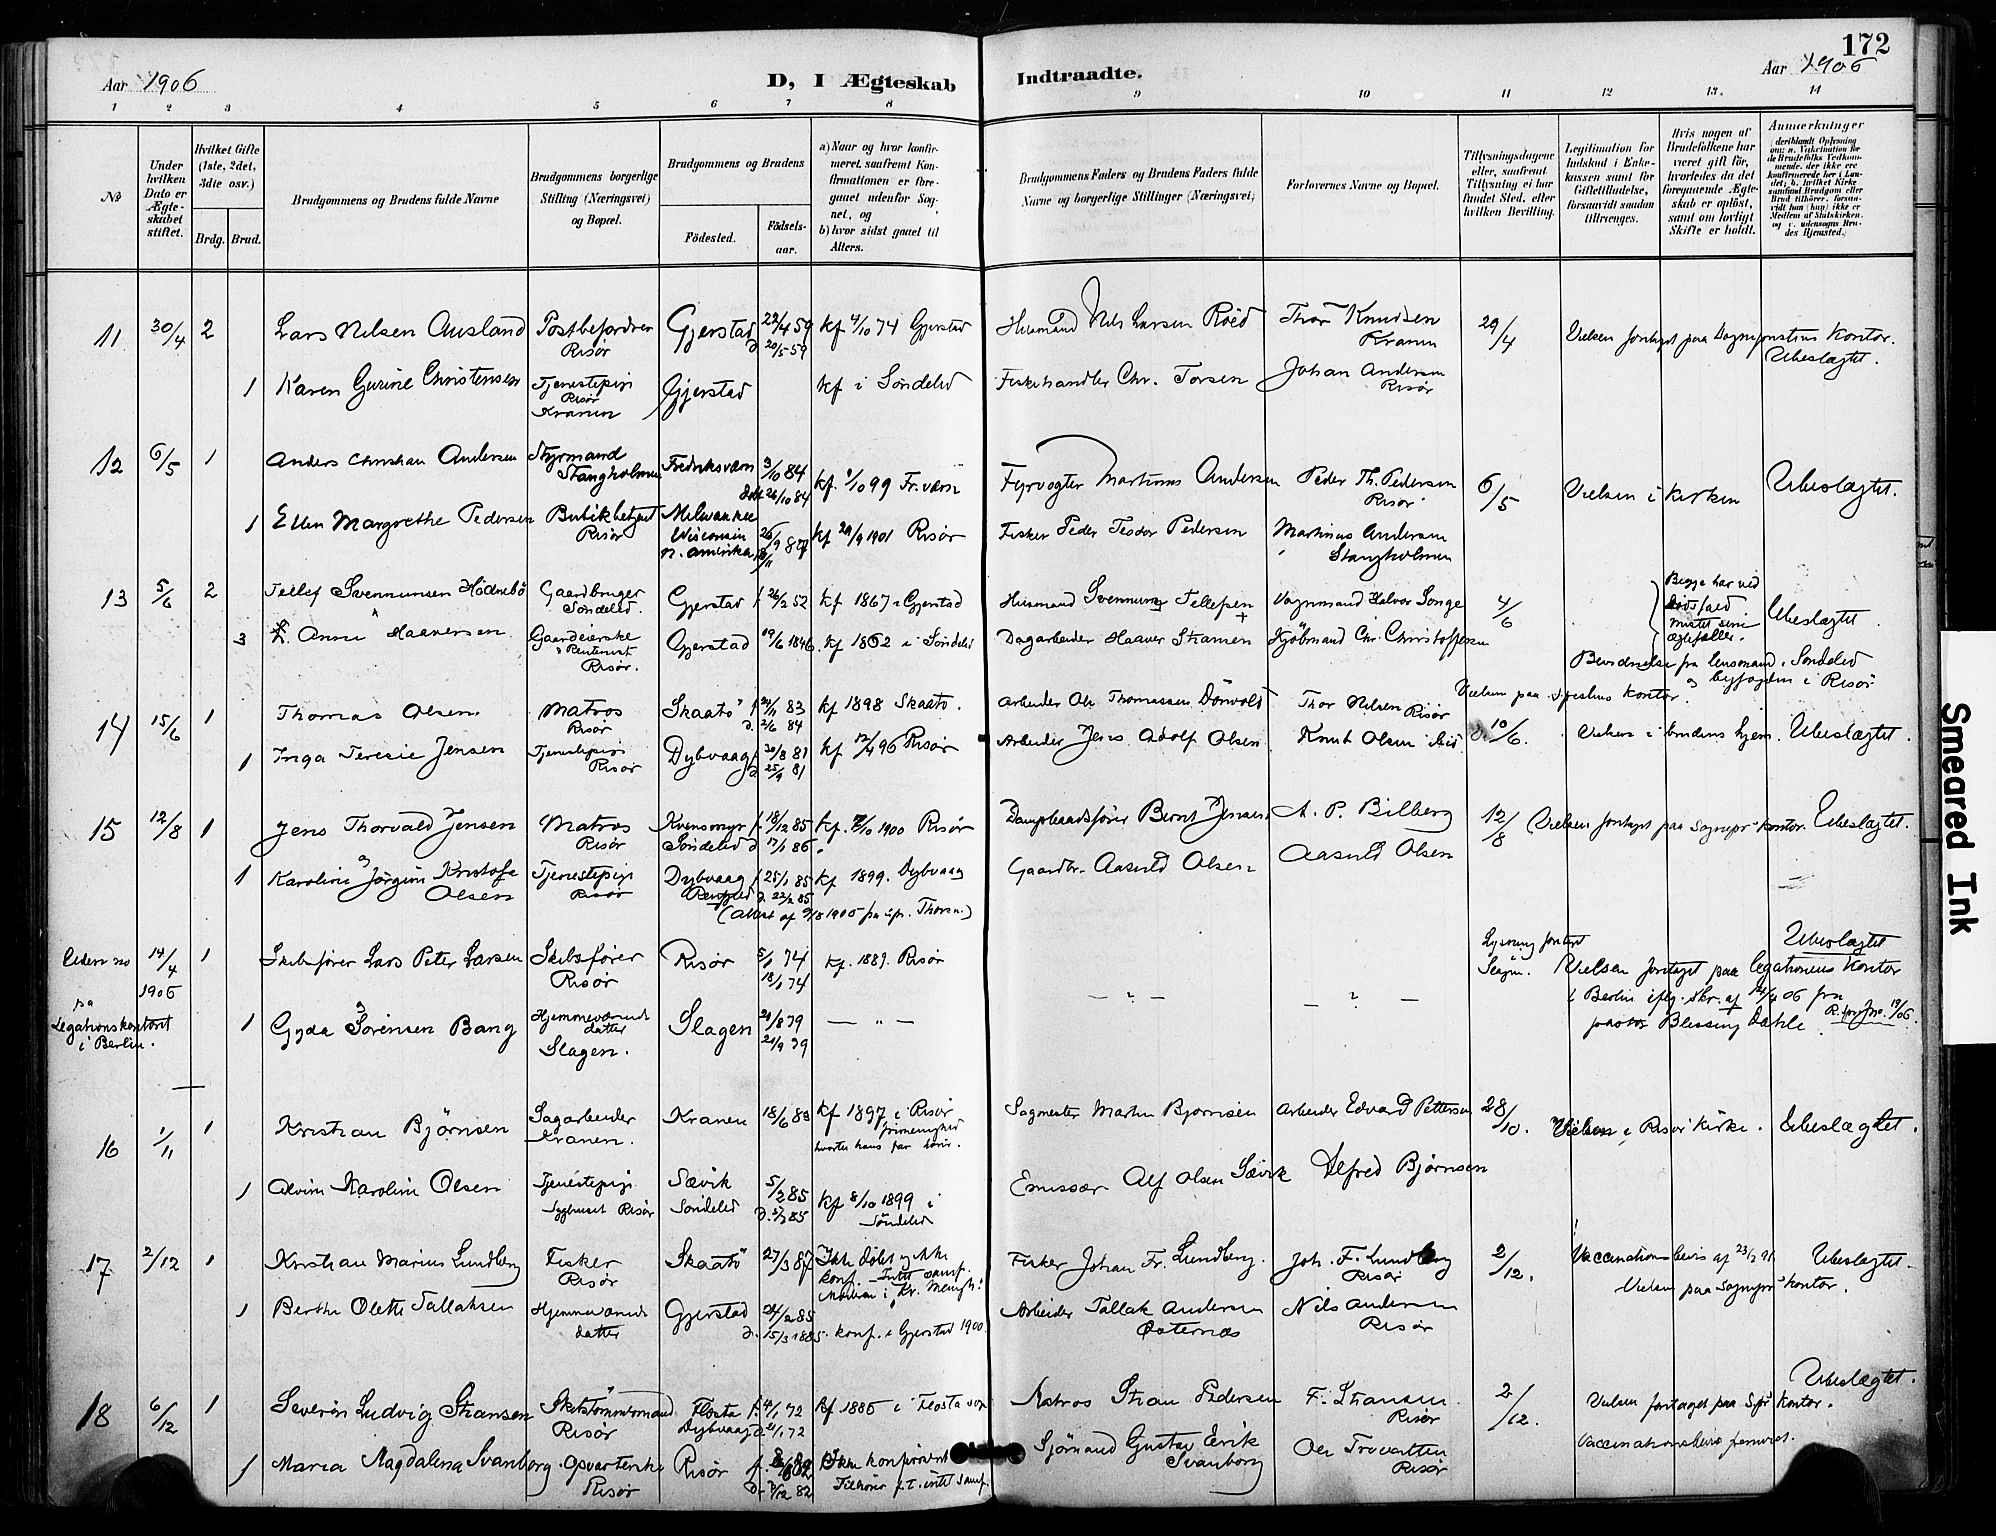 172
Aar 1906
D, I Ægteskab
Indtraadte.
Aar 1906
1 2 3 4 5 6 7 8 9 10 11 12 13. 14
No
Under hvilken Dato er Ægteskabet stiftet.
Hvilket Gifte (1ste, 2det, 3die osv.)
Brdg. Brud.
Brudgommens og Brudens fulde Navne
Brudgommens borgerlige Stilling (Næringsvei) og Bopæl.
Brudgommens og Brudens
Fødested.
Fødselsaar.
a) Naar og hvor konfirmeret, saafremt Konfirmationen er foregaaet udenfor Sognet, og
b) hvor sidst gaaet til Alters.
Brudgommens Faders og Brudens Faders fulde Navne og borgerlige Stillinger (Næringsvei)
Forlovernes Navne og Bopæl.
Tillysningsdagene eller, saafremt Tillysning ei har fundet Sted, efter hvilken Bevilling.
Legitimation for Indskud i Enkekassen samt for Giftetilladelse, forsaavidt saadan tiltrænges.
Hvis nogen af Brudefolkene har været gift før, hvorledes da det foregaaende Ægteskab er opløst, samt om lovligt Skifte er holdt.
Anmærkninger
11 30/4 2 Lars Nilsen Ausland Postbefordrer Risør Gjerstad 22/4 59 kf 4/10 74 Gjerstad
D 20/5 59
Husmand Nils Larsen Röed Thor Knudsen Kranen 29/4 Vielsen foretaget paa Sognepræstens Kontor.
Ubeslægtet.
1 Karen Gurine Christensen Tjenestepige Risør Kranen Gjerstad kf i Søndeled
Fiskehandler Chr. Torsen Johan Andersen Risør
12 6/5 1 Anders Christian Andersen Styrmand Stangholmen Fredriksværn 3/10 84 kf. 1/10 99 Fr.værn
Døbt 26/10 84
Fyrvogter Martinus Andersen Peder Th. Pedersen Risør 6/5 Vielsen i Kirken Ubeslægtet.
1 Ellen Margrethe Pedersen Butikbetjent Risør Milwaukee Wisconsin N. Amerika 26/9 87 kf 29/9 1901 Risør
Fisker Peder Teodor Pedersen Martinus Andersen Stangholmen
13 5/6 2 Tellef Svennumsen Hödnebö Gaardbruger Søndeled. Gjerstad f 26/2 52 kf 1867 i Gjerstad
Husmand Svennung Tellefsen Vognmand Halvor Songe 4/6
Begge har ved dødsfald mistet sine ægtefæller. Ubeslægtet.
3 Anne Haaversen Gaardeierske & Rentenist Risør. Gjerstad 19/6 1846. kf 1862 i Søndeled
Dagarbeider Haaver Stamen Kjöbmand Chr. Christoffersen
Bevidnelse fra lensmand i Søndeled og byfogden i Risør
Vielsen paa Spestens Kontor.
14 15/6 1 Thomas Olsen Matros Risør Skaatö f 24/11 83 kf 1898 Skaatö.
D. 2/6 84
Arbeider Ole Thomassen Dönvold Thor Nilsen Risør
1 Inga Teresie Jensen Tjenestepige Risør Dybvaag f 30/8 81 kf 12/4 96 Risør
D 25/9 81
Arbeider Jens Adolf Olsen Knut Olsen ibid 10/6. Vielsen i brudens hjem. Ubeslægtet.
15 12/8 1 Jens Thorvald Jensen Matros Risør Kvensmyr Søndeled f. 18/12 85 kf. 7/10 1900 Risør
D 17/1 86.
Dampbaadsfører Bernt Jensen A. P. Bilberg 12/8 Vielsen foretaget paa Sognepr kontor. Ubeslægtet.
1 Karoline Jørgine Kristofa Olsen Tjenestepige Risør Dybvaag f 25/1 85 kf 1899. Dybvaag
D. 22/2 85
Gaardbr. Aasuld Olsen Aasuld Olsen
14/4 1906 1 Skibsfører Lars Peter Larsen Skibsfører Risør Risør 5/1 74 kf. 1889. Risør
18/1 74
Lysning foretaget i Slagen. Vielsen foretaget paa legationens Kontor i Berlin iflg. skr. af 14/4 06 fra pastor Blessing Dahle.
Ubeslægtet
paa Legationskontoret i Berlin.
1 Gyda Sørensen Bang Hjemmeværende datter Slagen. Slagen 21/8 79 — „ —
21/9 79
16 1/11 1 Kristian Bjørnsen Sagarbeider Kranen. Kranen 18/6 83 kf 1897 i Risør
Sagmester Martin Bjørnsen Arbeider Edvard Pettersen 28/10. Vielsen i Risør Kirke. Ubeslægtet.
1 Alvine Karoline Olsen Tjenestepige Sygehuset Risør Sævik Søndeled 5/2 85 kf 8/10 1899 i Søndeled
Emissær Alf Olsen Sævik Alfred Bjørnsen
17 2/12 1 Kristian Marius Lundberg Fisker Risør Skaatö 27/3 87 Ikke døbt og ikke konf.
Fisker Johan Fr. Lundberg. Joh. F. Lundberg Risør 2/12. Vaccinationsbevis af 23/2 91. Ubeslægtet.
Vielsen paa Sognepr kontor.
1 Berthe Olette Tallaksen Hjemmeværende datter Gjerstad 24/2 85
D. 15/3 1885. konf. i Gjerstad 1900.
Arbeider Tallak Andersen Østernæs Nils Andersen Risør
18 6/12 1 Severin Ludvig Stransen Skibstømmermand Risør Flosta Dybvaag f. 4/1 72 kf 1886 i Flosta sogn
D. 21/1 72
Matros Stran Pedersen F. Stransen Risør 2/12. Vielsen foretaget paa Spr Kontor.
Ubeslægtet.
1 Maria Magdalena Svanborg Opvarterske Risør Risør Ikke konfirmeret
D. 3/12 82
Sjømand Gustav Erik Svanborg Ole Trovatten Risør Vaccinationsbevis foreviist.
Smeared Ink